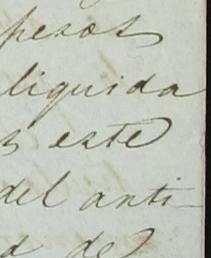 pesos
liquida
s este
del anti-
d de